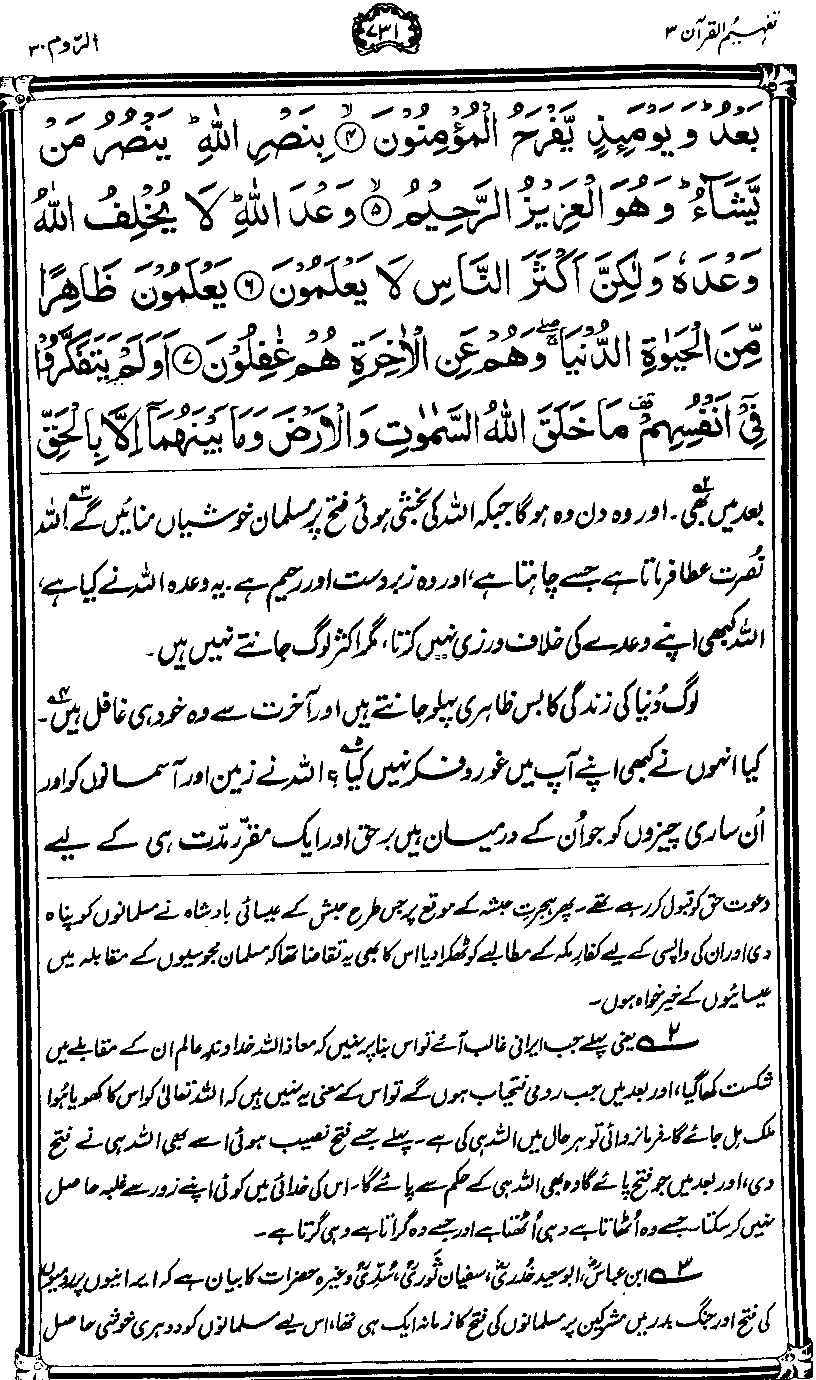 تفہیم القرآن ۳
۷۳۱
الرّوم ۳۰
بَعۡدُ ؕ وَ یَوۡمَئِذٍ یَّفۡرَحُ الۡمُؤۡمِنُوۡنَ ۙ﴿۴﴾ بِنَصۡرِ اللّٰہِ ؕ یَنۡصُرُ مَنۡ
یَّشَآءُ ؕ وَ ہُوَ الۡعَزِیۡزُ الرَّحِیۡمُ ۙ﴿۵﴾ وَعۡدَ اللّٰہِ ؕ لَا یُخۡلِفُ اللّٰہُ
وَعۡدَہٗ وَ لٰکِنَّ اَکۡثَرَ النَّاسِ لَا یَعۡلَمُوۡنَ ﴿۶﴾ یَعۡلَمُوۡنَ ظَاہِرًا
مِّنَ الۡحَیٰوۃِ الدُّنۡیَا ۚۖ وَ ہُمۡ عَنِ الۡاٰخِرَۃِ ہُمۡ غٰفِلُوۡنَ ﴿۷﴾ اَوَ لَمۡ یَتَفَکَّرُوۡا
فِیۡۤ اَنۡفُسِہِمۡ ۟ مَا خَلَقَ اللّٰہُ السَّمٰوٰتِ وَ الۡاَرۡضَ وَ مَا بَیۡنَہُمَاۤ اِلَّا بِالۡحَقِّ
بعد میں بھی۲۔ اور وہ دن وہ ہوگا جبکہ اللہ کی بخشی ہوئی فتح پر مسلمان خوشیاں منائیں گے۳۔ اللہ
نُصرت عطا فرماتا ہے جسے چاہتا ہے، اور وہ زبردست اور رحیم ہے۔ یہ وعدہ اللہ نے کیا ہے،
اللہ کبھی اپنے وعدے کی خلاف ورزی نہیں کرتا، مگر اکثر لوگ جانتے نہیں ہیں۔
لوگ دُنیا کی زندگی کا بس ظاہری پہلو جانتے ہیں اور آخرت سے وہ خود ہی غافل ہیں۴۔
کیا انہوں نے کبھی اپنے آپ میں غور و فکر نہیں کیا۵؟ اللہ نے زمین اور آسمانوں کو اور
اُن ساری چیزوں کو جو اُن کے درمیان ہیں برحق اور ایک مقرّر مدّت ہی کے لیے
دعوت حق کو قبول کر رہے تھے۔ پھر ہجرتِ حبشہ کے موقع پر جس طرح حبش کے عیسائی بادشاہ نے مسلمانوں کو پناہ
دی اور ان کی واپسی کے لیے کفارِ مکہ کے مطالبے کو ٹھکرا دیا اس کا بھی یہ تقاضا تھا کہ مسلمان مجوسیوں کے مقابلہ میں
عیسائیوں کے خیر خواہ ہوں۔
۲؎ یعنی پہلے جب ایرانی غالب آئے تو اس بنا پر نہیں کہ معاذ اللہ خداوندِ عالم ان کے مقابلے میں
شکست کھا گیا، اور بعد میں جب رومی فتحیاب ہوں گے تو اس کے معنی یہ نہیں ہیں کہ اللہ تعالیٰ کو اس کا کھویا ہُوا
ملک مل جائے گا۔ فرمانروائی تو ہر حال میں اللہ ہی کی ہے۔ پہلے جسے فتح نصیب ہوئی اسے بھی اللہ ہی نے فتح
دی، اور بعد میں جو فتح پائے گا وہ بھی اللہ ہی کے حکم سے پائے گا۔ اس کی خدائی میں کوئی اپنے زور سے غلبہ حاصل
نہیں کر سکتا۔ جسے وہ اُٹھاتا ہے وہی اُٹھتا ہے اور جسے وہ گراتا ہے وہی گرتا ہے۔
۳؎ ابن عباسؓ، ابو سعید خُدریؓ، سفیان ثوریؒ، سُدّیؒ وغیرہ حضرات کا بیان ہے کہ ایرانیوں پر رومیوں
کی فتح اور جنگ بدر میں مشرکین پر مسلمانوں کی فتح کا زمانہ ایک ہی تھا، اس لیے مسلمانوں کو دوہری خوشی حاصل